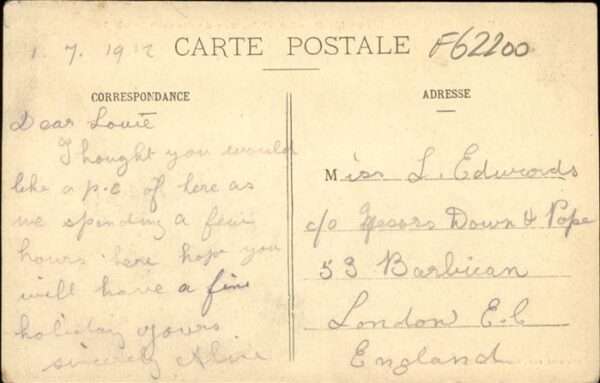 1. 7. 1912
CARTE POSTALE
F62200
CORRESPONDANCE
Dear Louie
Thought you would
like a p.c of here as
we spending a few
hours here hope you
will have a fine
holiday yours
sincerely
ADRESSE
Miss L. Edwards
c/o Messrs Down & Pope
53 Barbican
London E.C
England